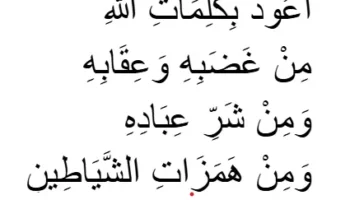 أعوذ بِكَلِمَاتِ اللَّهِ
مِنْ غَضَبِهِ وَعِقَابِهِ
وَمِنْ شَرِّ عِبَادِهِ
وَمِنْ هَمَزَاتِ الشَّيَاطِين